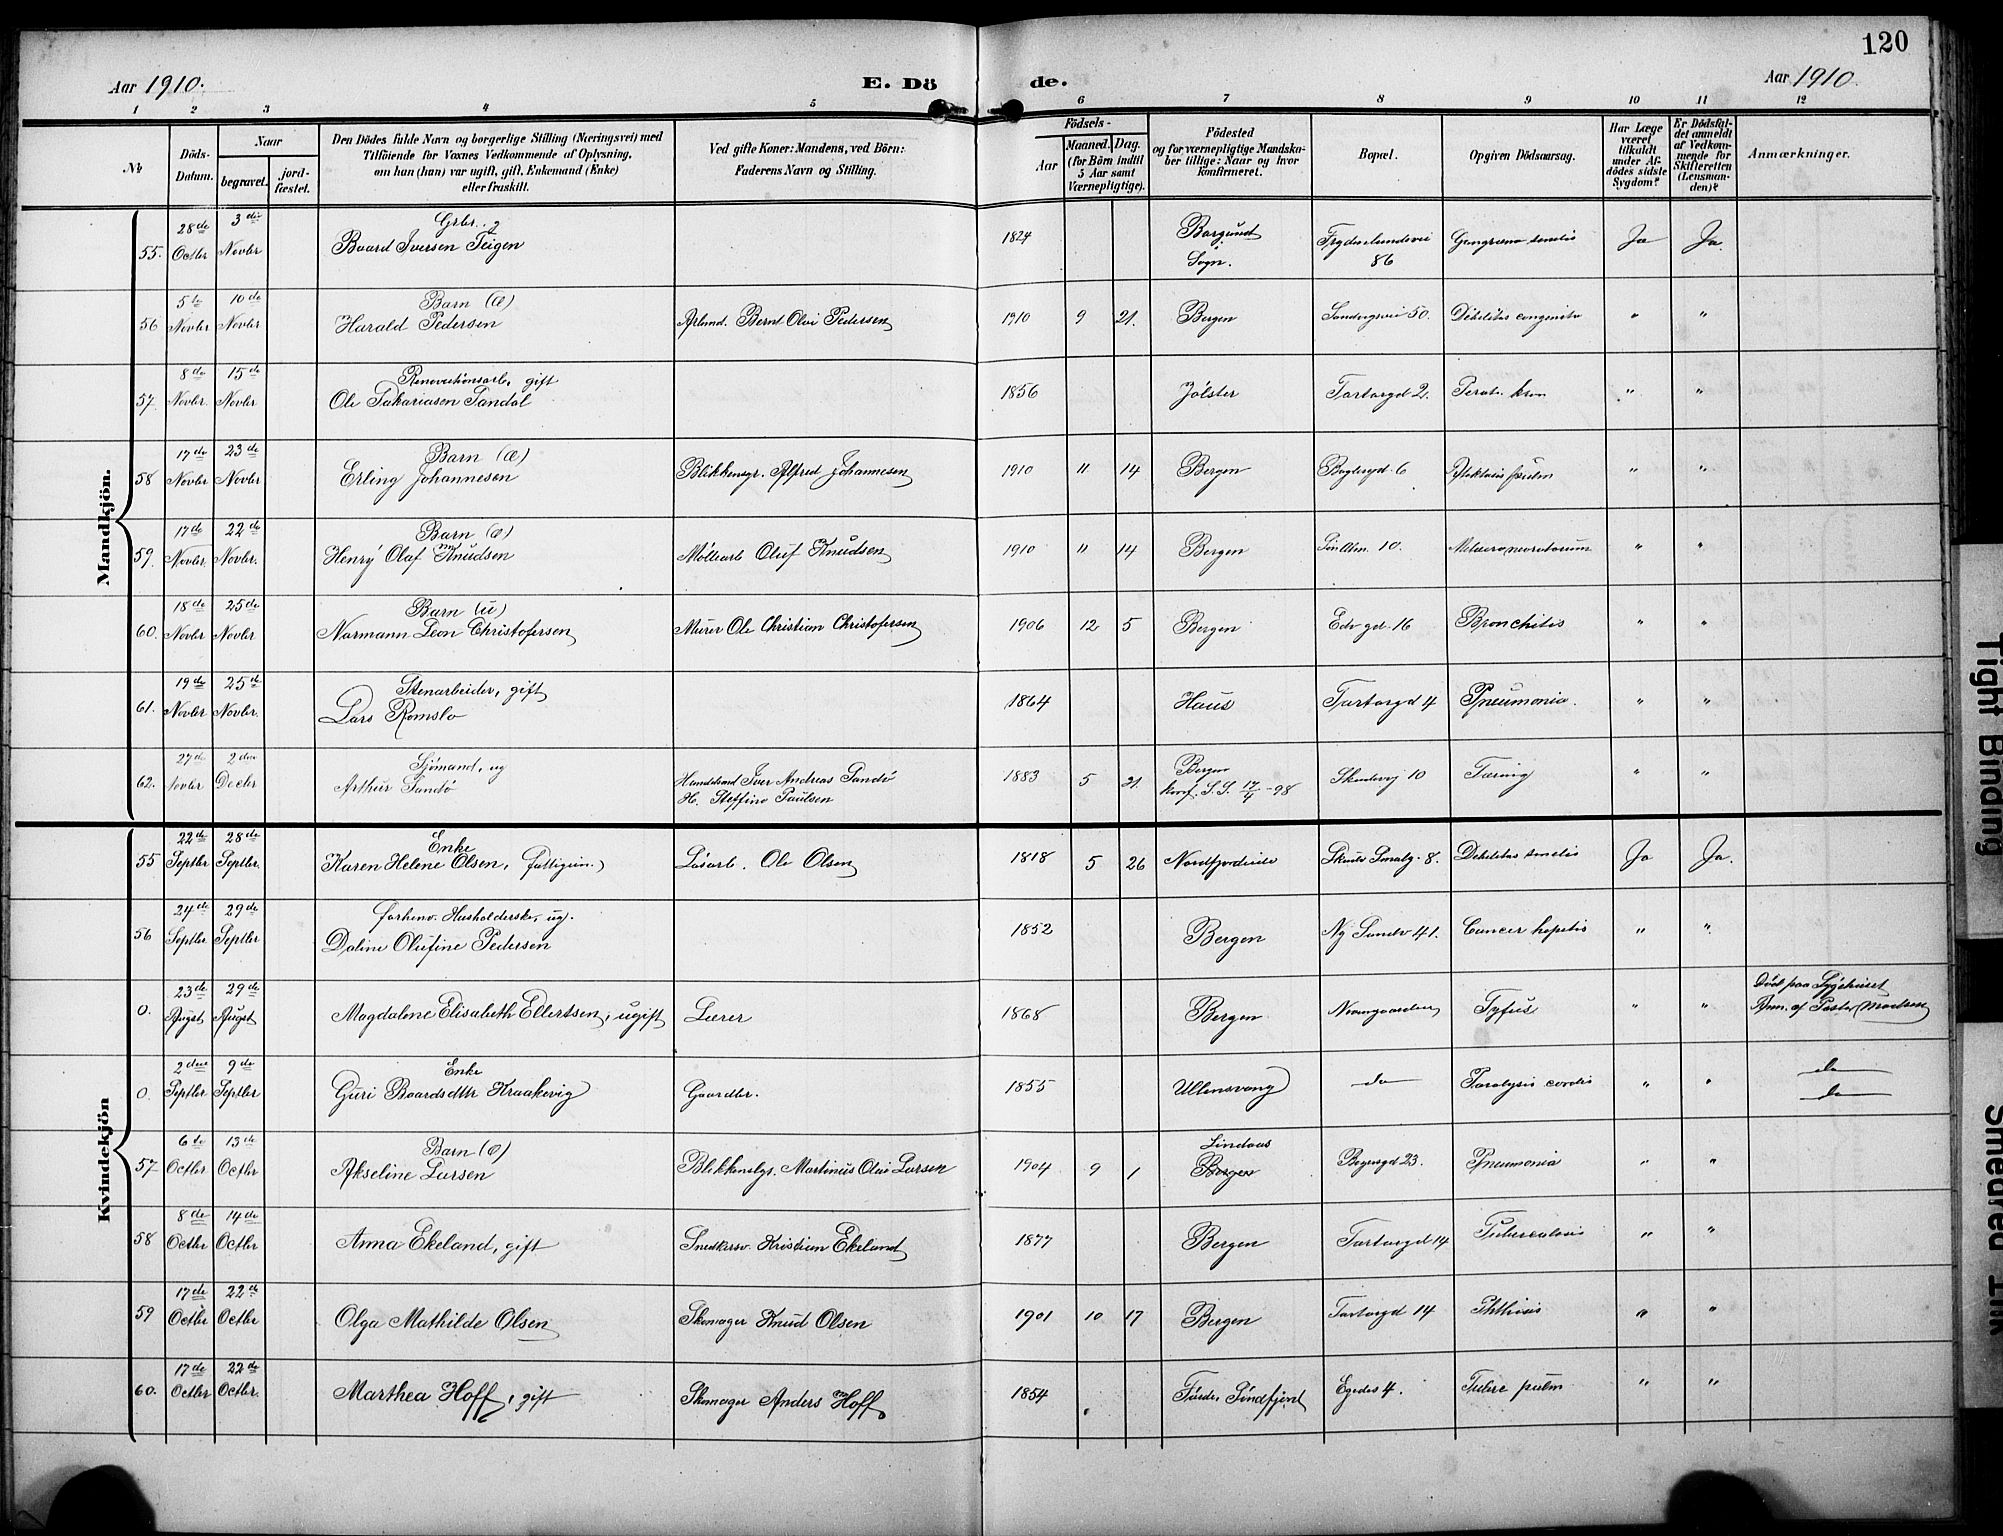 120
Aar 1910. E. Dö de. Aar 1910.
1 2 3 4 5 6 7 8 9 10 11 12
No
Döds-Datum.
Naar
begravet. jord-fæstet.
Den Dödes fulde Navn og borgerlige Stilling (Næringsvei) med
Tilföiende for Voxnes Vedkommende af Oplysning,
om han (hun) var ugift, gift, Enkemand (Enke)
eller fraskilt.
Ved gifte Koner: Mandens, ved Börn:
Faderens Navn og Stilling.
Födsels-
Aar Maaned. Dag.
(for Börn indtil
5 Aar samt
Værnepligtige).
Födested
og for værnepligtige Mandska-
ber tillige: Naar og hvor
konfirmeret.
Bopæl.
Opgiven Dödsaarsag.
Har Læge
været
tilkaldt
under Af-
dödes sidste
Sygdom?
Er Dödsfal-
det anmeldt
af Vedkom-
mende for
Skifteretten
(Lensman-
den)?
Anmærkninger.
Mandkjön.
55. 28de Octbr 3die Novbr Grbr. Baard Iversen Teigen 1824 Borgund Sogn. 86 Ja Ja.
56 5te Novbr 10de Novbr Barn (Æ) Harald Pedersen Arbmd. Bernt Olvi Pedersen 1910 9 21. Bergen Sandvigsvei 50. Debilitas congenita " "
57. 8de Novbr. 15de Novbr gift Ole Sandal 1856 Jølster Tartargd 2. " "
58 17de Novbr 23de Novbr Barn (Æ) Erling Johannesen Blikkensgr. Alfred Johannesen 1910 11 14 Bergen Baglergd 6 " "
59. 17de Novbr 22de Novbr. Barn (Æ) Henry Olaf Knudsen Møllearb Oluf Knudsen 1910 11 14 Bergen 10. " "
60. 18de Novbr 25de Novbr Barn (U) Normann Leon Christofersen Murer Ole Christian Christofersen 1906 12 5 Bergen 16 Bronchitis " "
61. 19de Novbr 25de Novbr. Stenarbeider, gift Lars Romslo 1864 Haus Tartargd 4 Pneumonia. " "
62. 27de Novbr 2den Decbr Sjömand, ug Arthur Sandö Iver Andreas Sandö
H. Steffine Paulsen 1883 5 21. Bergen
konf. S.S. 17/4 -98 Skudevig 10 Tæring " "
Kvindekjön
55 22de Septbr 28de Septbr. Enke Karen Helene Olsen, (fattigun.) Løsarb. Ole Olsen 1818 5 26 Nordfjordeide 8. Debilitas senilis Ja Ja.
56 24de Septbr 29de Septbr forhenv. Husholderske, ug. Daline Olufine Pedersen 1852 Bergen Ny Sandv 41. Cancer hepatis " "
0. 23de Augst 29de Augst Magdalene Elisabeth Ellertsen, ugift Lærer 1868 Bergen Tyfus " " Död paa Sygehuset
Anm. af Pastor Madsen
0. 2den Septbr 9de Septbr Enke Guri Baardsdtr Kraakevig Gaardbr. 1855 Ullensvang do Paralysis cordis " " do
do
57 6te Octbr 13de Octbr Barn (Æ) Akseline Larsen Blikkenslgr. Martinius Olai Larsen 1904 9 1 Lindaas
Bergen 23. Pneumonia " "
58 8de Octbr 14de Octbr Anna Ekeland, gift Snedkersv. Kristian Ekeland 1877 Bergen Tartargd 14 Tuberculosis " "
59 17de Octbr 22de Octbr Olga Mathilde Olsen Skomager Knud Olsen 1901 10 17 Bergen Tartargd 14 Phthisis " "
60. 17de Octbr 22de Octbr. Marthea Hoff, gift Skomager Anders Hoff 1854 Førde, Søndfjord Egedes 4. Tuberc pulm " "
Tight Binding
Smeared Ink